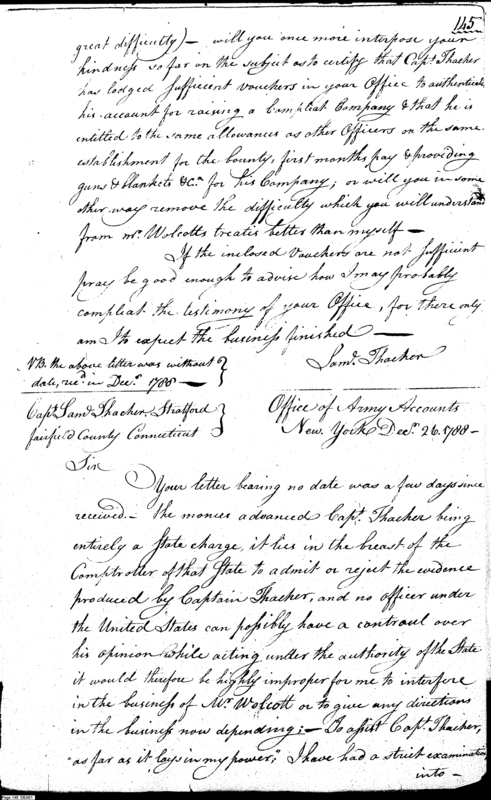 145
great difficulty) — will you once more interpose your
kindness so far on the subject as to certify that Capt. Thacher
has lodged sufficient vouchers in your Office to authenticate
his account for raising a Compleat Company & that he is
entitled to the same allowances as other Officers on the same
establishment for the bounty, first months pay & providing
guns & blankets &Ca. for his Company; or will you in some
other way remove the difficulty which you will understand
from Mr. Wolcotts treates better than myself —
If the inclosed Vouchers are not sufficient
pray be good enough to advise how I may probably
compleat the testimony of your Office, for there only
am I to expect the business finished —
Saml. Thacher
NB. the above letter was without
date, rec'd in Decr. 1788 —
Capt. Saml. Thacher, Stratford
fairfield County Connecticut
Office of Army Accounts
New York Decr. 26. 1788 —
Sir
Your letter bearing no date was a few days since
received. — The monies advanced Capt. Thacher being
entirely a State charge, it lies in the breast of the
Comptroller of that State to admit or reject the evidence
produced by Captain Thacher, and no officer under
the United States can possibly have a controul over
his opinion while acting under the authority of the State
it would therefore be highly improper for me to interfere
in the business of Mr. Wolcott or to give any directions
in the business now depending; — To assist Capt. Thacher,
"as far as it lays in my power," I have had a strict examination
into —